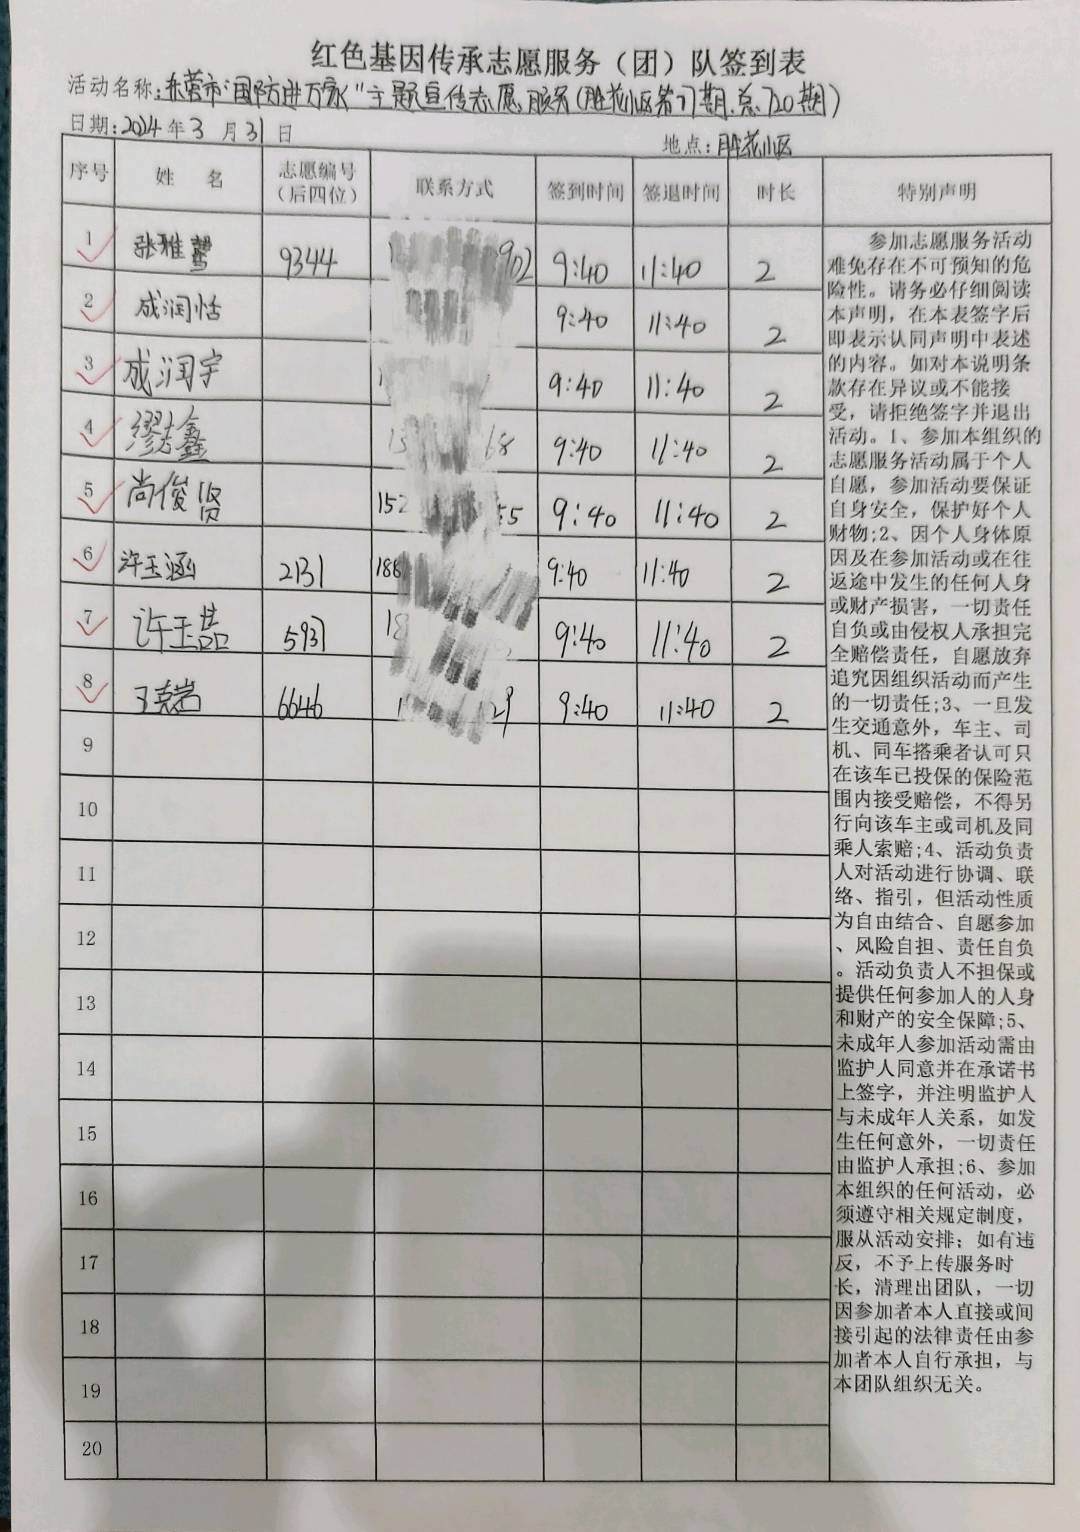 红色基因传承志愿服务（团）队签到表
活动名称:东营市"国防进万家"主题宣传志愿服务(胜花小区第77期.总720期)
日期:2024年3月31日
地点:胜花小区
序号 姓名 志愿编号（后四位） 联系方式 签到时间 签退时间 时长 特别声明
1 张雅 9344 902 9:40 11:40 2
2 成润恬 9:40 11:40 2
3 成润宇 9:40 11:40 2
4 缪志鑫 68 9:40 11:40 2
5 尚俊贤 152 55 9:40 11:40 2
6 许玉涵 2131 188 9:40 11:40 2
7 许玉喆 5937 18 9:40 11:40 2
8 王克岩 6646 1 29 9:40 11:40 2
9
10
11
12
13
14
15
16
17
18
19
20
参加志愿服务活动
难免存在不可预知的危
险性。请务必仔细阅读
本声明，在本表签字后
即表示认同声明中表述
的内容。如对本说明条
款存在异议或不能接
受，请拒绝签字并退出
活动。1、参加本组织的
志愿服务活动属于个人
自愿，参加活动要保证
自身安全，保护好个人
财物;2、因个人身体原
因及在参加活动或在往
返途中发生的任何人身
或财产损害，一切责任
自负或由侵权人承担完
全赔偿责任，自愿放弃
追究因组织活动而产生
的一切责任;3、一旦发
生交通意外，车主、司
机、同车搭乘者认可只
在该车已投保的保险范
围内接受赔偿，不得另
行向该车主或司机及同
乘人索赔;4、活动负责
人对活动进行协调、联
络、指引，但活动性质
为自由结合、自愿参加
、风险自担、责任自负
。活动负责人不担保或
提供任何参加人的人身
和财产的安全保障;5、
未成年人参加活动需由
监护人同意并在承诺书
上签字，并注明监护人
与未成年人关系，如发
生任何意外，一切责任
由监护人承担;6、参加
本组织的任何活动，必
须遵守相关规定制度，
服从活动安排；如有违
反，不予上传服务时
长，清理出团队，一切
因参加者本人直接或间
接引起的法律责任由参
加者本人自行承担，与
本团队组织无关。